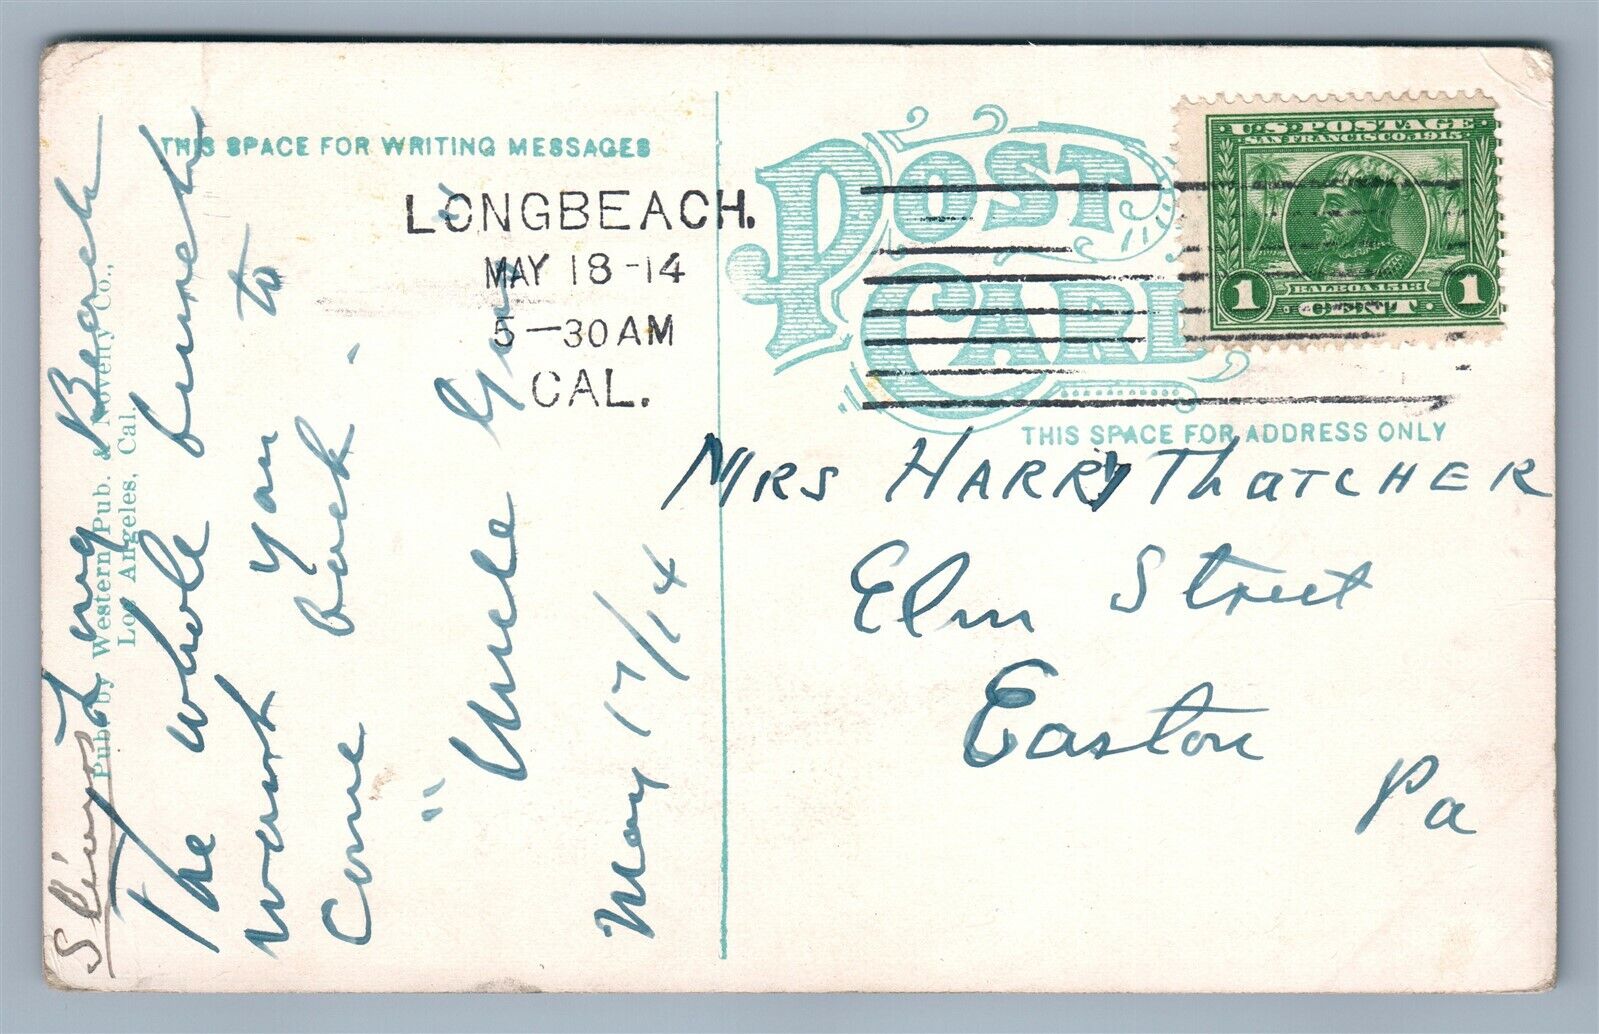 THIS SPACE FOR WRITING MESSAGES
Long Beach
The whole bunch
want you to
come back.
"Uncle Guy"
May 17/14
Pub. by Western Pub. & Novelty Co.,
Los Angeles, Cal.
LONGBEACH.
MAY 18-14
5-30AM
CAL.
POST CARD
U.S. POSTAGE
SAN FRANCISCO 1915
BALBOA 1513
1 CENT 1
THIS SPACE FOR ADDRESS ONLY
MRS HARRY ThATCHER
Elm Street
Easton
Pa